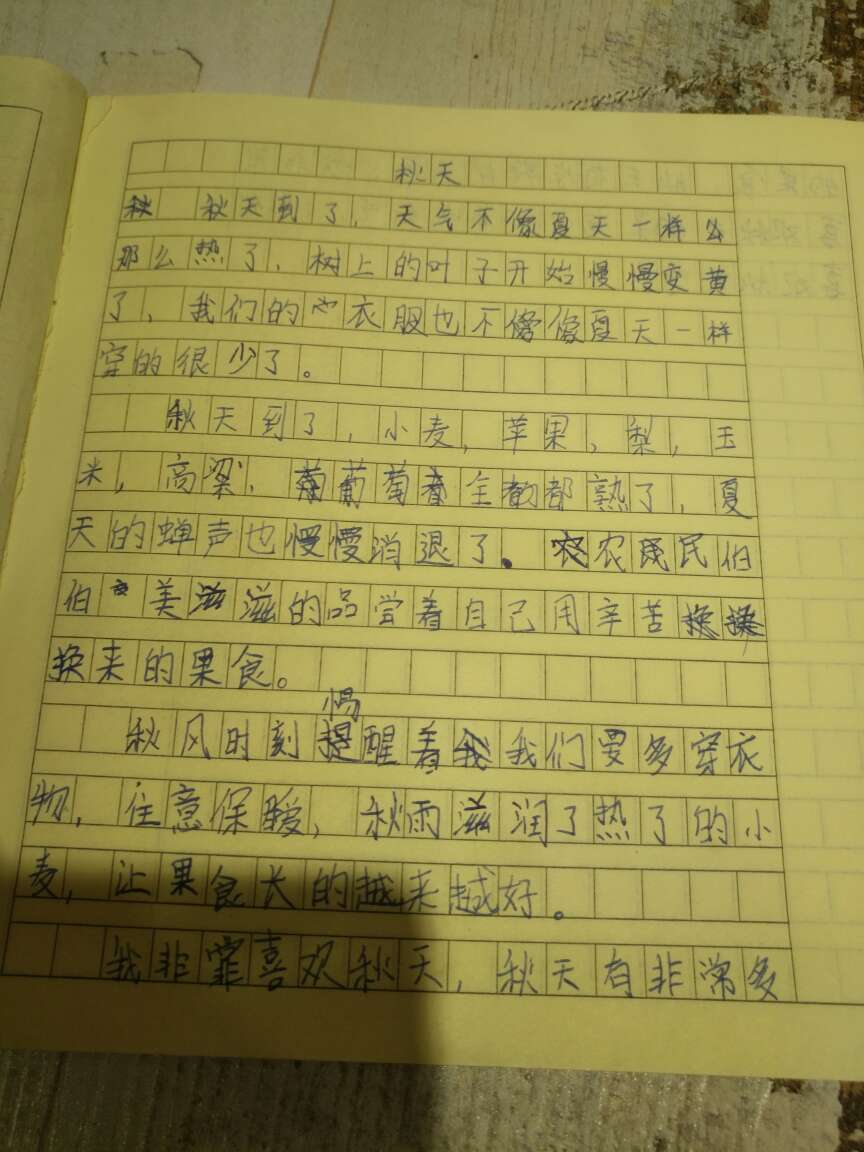 秋天
秋天到了，天气不像夏天一样
那么热了，树上的叶子开始慢慢变黄
了，我们的衣服也不像夏天一样
穿的很少了。
秋天到了，小麦，苹果，梨，玉
米，高粱，葡萄全都熟了，夏
天的蝉声也慢慢消退了。农民伯
伯美滋滋的品尝着自己用辛苦
换来的果食。
秋风时刻提醒着我们要多穿衣
物，注意保暖，秋雨滋润了热了的小
麦，让果食长的越来越好。
我非常喜欢秋天，秋天有非常多